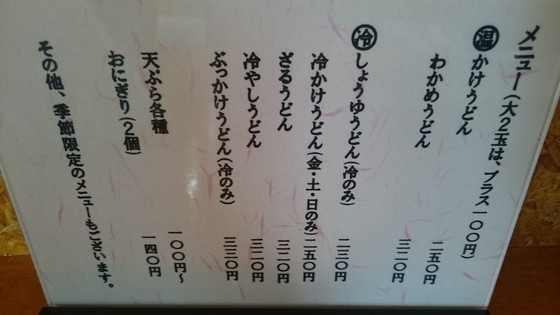 メニュー(大2玉は、プラス一〇〇円)
温 かけうどん 二五〇円
わかめうどん 三二〇円
冷 しょうゆうどん(冷のみ) 二三〇円
冷かけうどん(金・土・日のみ) 二五〇円
ざるうどん 三二〇円
冷やしうどん 三二〇円
ぶっかけうどん(冷のみ) 三三〇円
天ぷら各種 一〇〇円〜
おにぎり(2個) 一四〇円
その他、季節限定のメニューもございます。